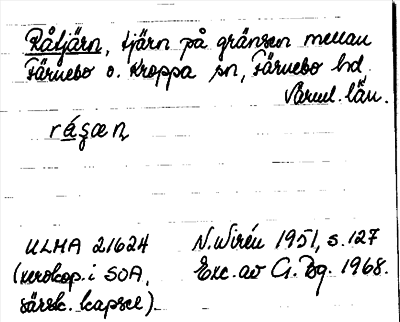 Råtjärn, tjärn på gränsen mellan
Färnebo o. Kroppa sn, Färnebo hd.
Värml. län.
ráʂæṇ
ULMA 21624 N. Wirén 1951, s. 127
(xerokop. i SOA, Exc. av G. Bg. 1968.
särsk. kapsel).